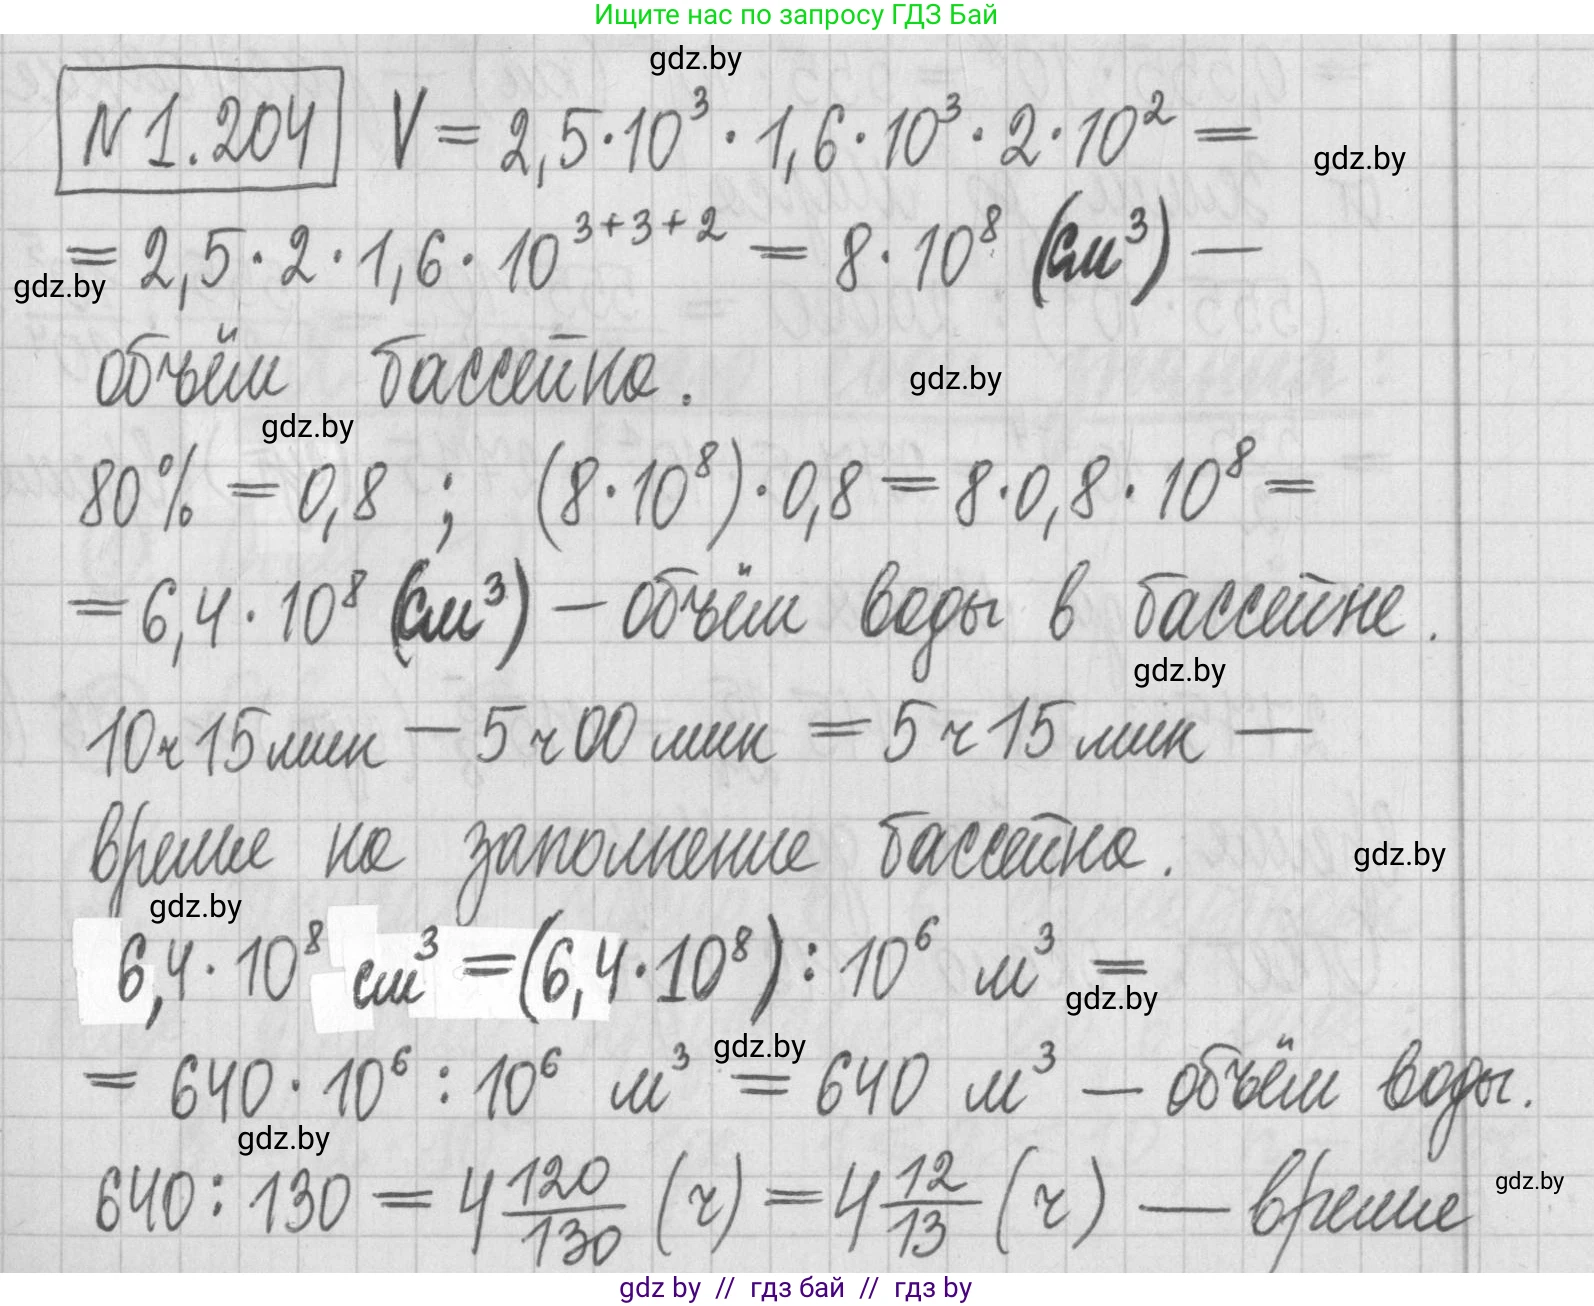 Ищите нас по запросу ГДЗ Бай
gdz.by
N 1.204 V = 2,5·10³ · 1,6·10³ · 2·10² =
gdz.by
= 2,5 · 2 · 1,6 · 10³⁺³⁺² = 8 · 10⁸ (см³) —
gdz.by
объём бассейна.
gdz.by
gdz.by
80% = 0,8 ; (8·10⁸)·0,8 = 8·0,8·10⁸ =
= 6,4 · 10⁸ (см³) — объём воды в бассейне.
gdz.by
10ч 15мин — 5ч 00 мин = 5ч 15 мин —
время на заполнение бассейна.
gdz.by
gdz.by
6,4 · 10⁸ см³ = (6,4·10⁸) : 10⁶ м³ =
gdz.by
gdz.by
= 640 · 10⁶ : 10⁶ м³ = 640 м³ — объём воды.
gdz.by
640 : 130 = 4 120/130 (ч) = 4 12/13 (ч) — время
gdz.by
gdz by // гдз бай // гдз by